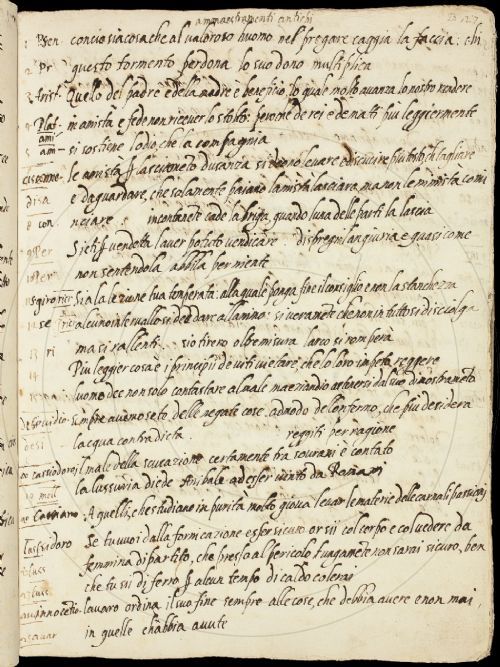 ammaestramenti antichi
1 Sen conciosiacosache al valoroso huomo nel pregare caggia la faccia: chi
2 Pr questo tormento perdona lo suo dono multiplica
3 Arist. Quello del padre e della madre e beneficio, lo quale molto avanza lo nostro rendere
4 Plat in amistà e fede non ricever lo stolto: peroche de rei e de matti più leggiermente
ami si sostiene l'odio, che la compagnia
Cicerone le amistà lasciamento d'usanza si deono levare e discucire più tosto che tagliare
disa e da guardare, che solamente paiano l'amistà lasciara, ma non le nimistà comi
8 con nciare: incontanente cade la briga, quando l'una delle parti la lascia
9 Per Sieti vendetta l'aver potuto vendicare. dispregi l'angiuria e quasi come
10 Per non sentendola abbila per niente
Sia la lezione tua temperata: alla quale ponga fine il consiglio e non la stanchezza
12 se alcuno intervallo si dee dare all'animo: si veramente che non in tutto si disciolga
13 ri ma si rallenti. s'io tirerò oltre misura l'arco si romperà
14 Più leggier cosa è i principii de viti vietare, che lo loro impeto reggere
l'uomo dee non solo contastare al male ma eziandio
Ovidio sempre avemo sete delle negate cose. a modo dello'nfermo, che più desidera
l'acqua contradicta. regniti per ragione
Cassiodoro il male della scusazione certamente tra sourani è contato
la lussuria diede Anibale ad esser vinto da Romani
Cassiano A quelli, che studiano in purità molto giova levar le materie delle carnali passioni
Isidoro Se tu vuoi dalla fornicazione esser sicuro or sii col corpo e col vedere da
femmina dipartito, che presso al pericolo lungamente non sarai sicuro, ben
che tu sii di ferro alcun tempo di caldo colerai
Innocenzo l'avaro ordina il suo fine sempre alle cose, che debbia avere e non mai,
avar in quelle ch'abbia avute